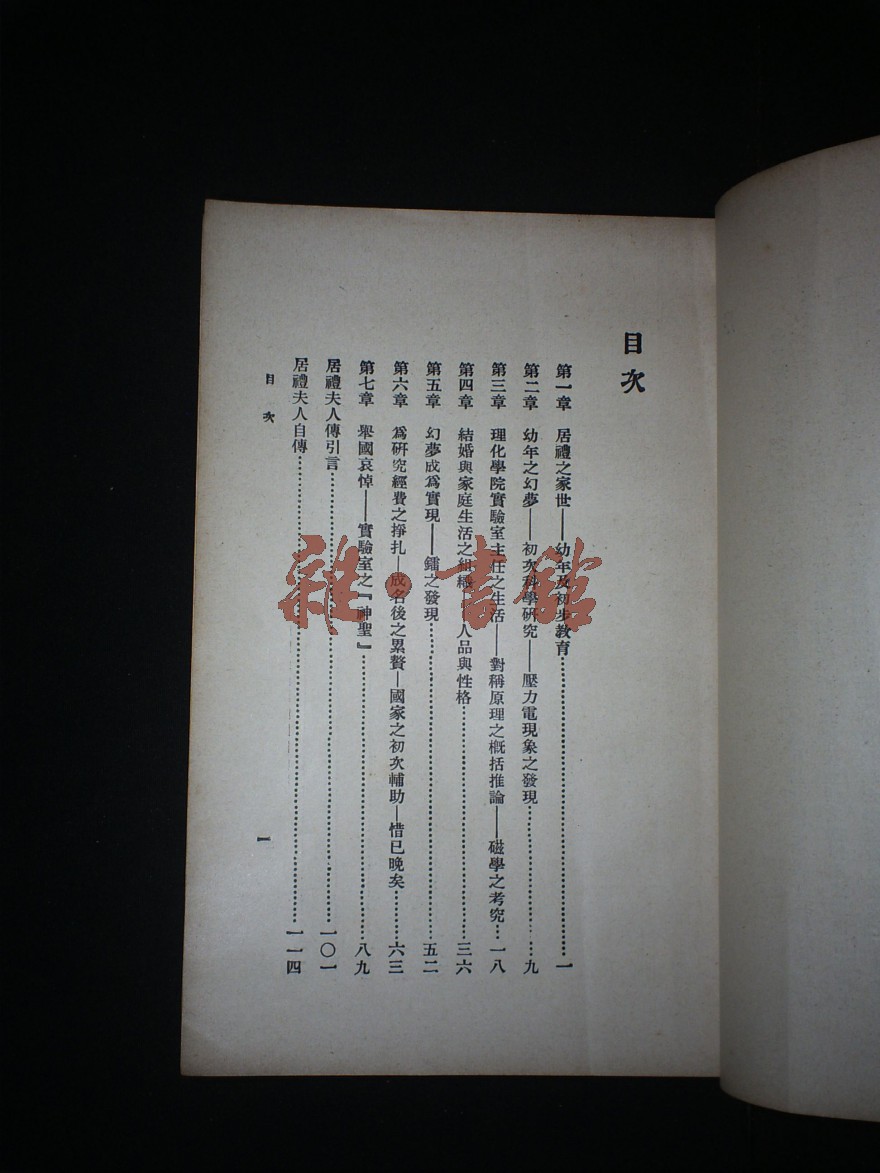 目次
第一章　居禮之家世——幼年及初步教育…………一
第二章　幼年之幻夢——初次科學研究——壓力電現象之發現…………九
第三章　理化學院實驗室主任之生活——對稱原理之概括推論——磁學之考究…一八
第四章　結婚與家庭生活之組織——人品與性格…………三六
第五章　幻夢成爲實現——鐳之發現…………五二
第六章　爲研究經費之掙扎—成名後之累贅—國家之初次輔助——惜已晚矣…………六三
第七章　舉國哀悼——實驗室之『神聖』…………八九
居禮夫人傳引言…………一〇一
居禮夫人自傳…………一一四
目次
一
雜·書館